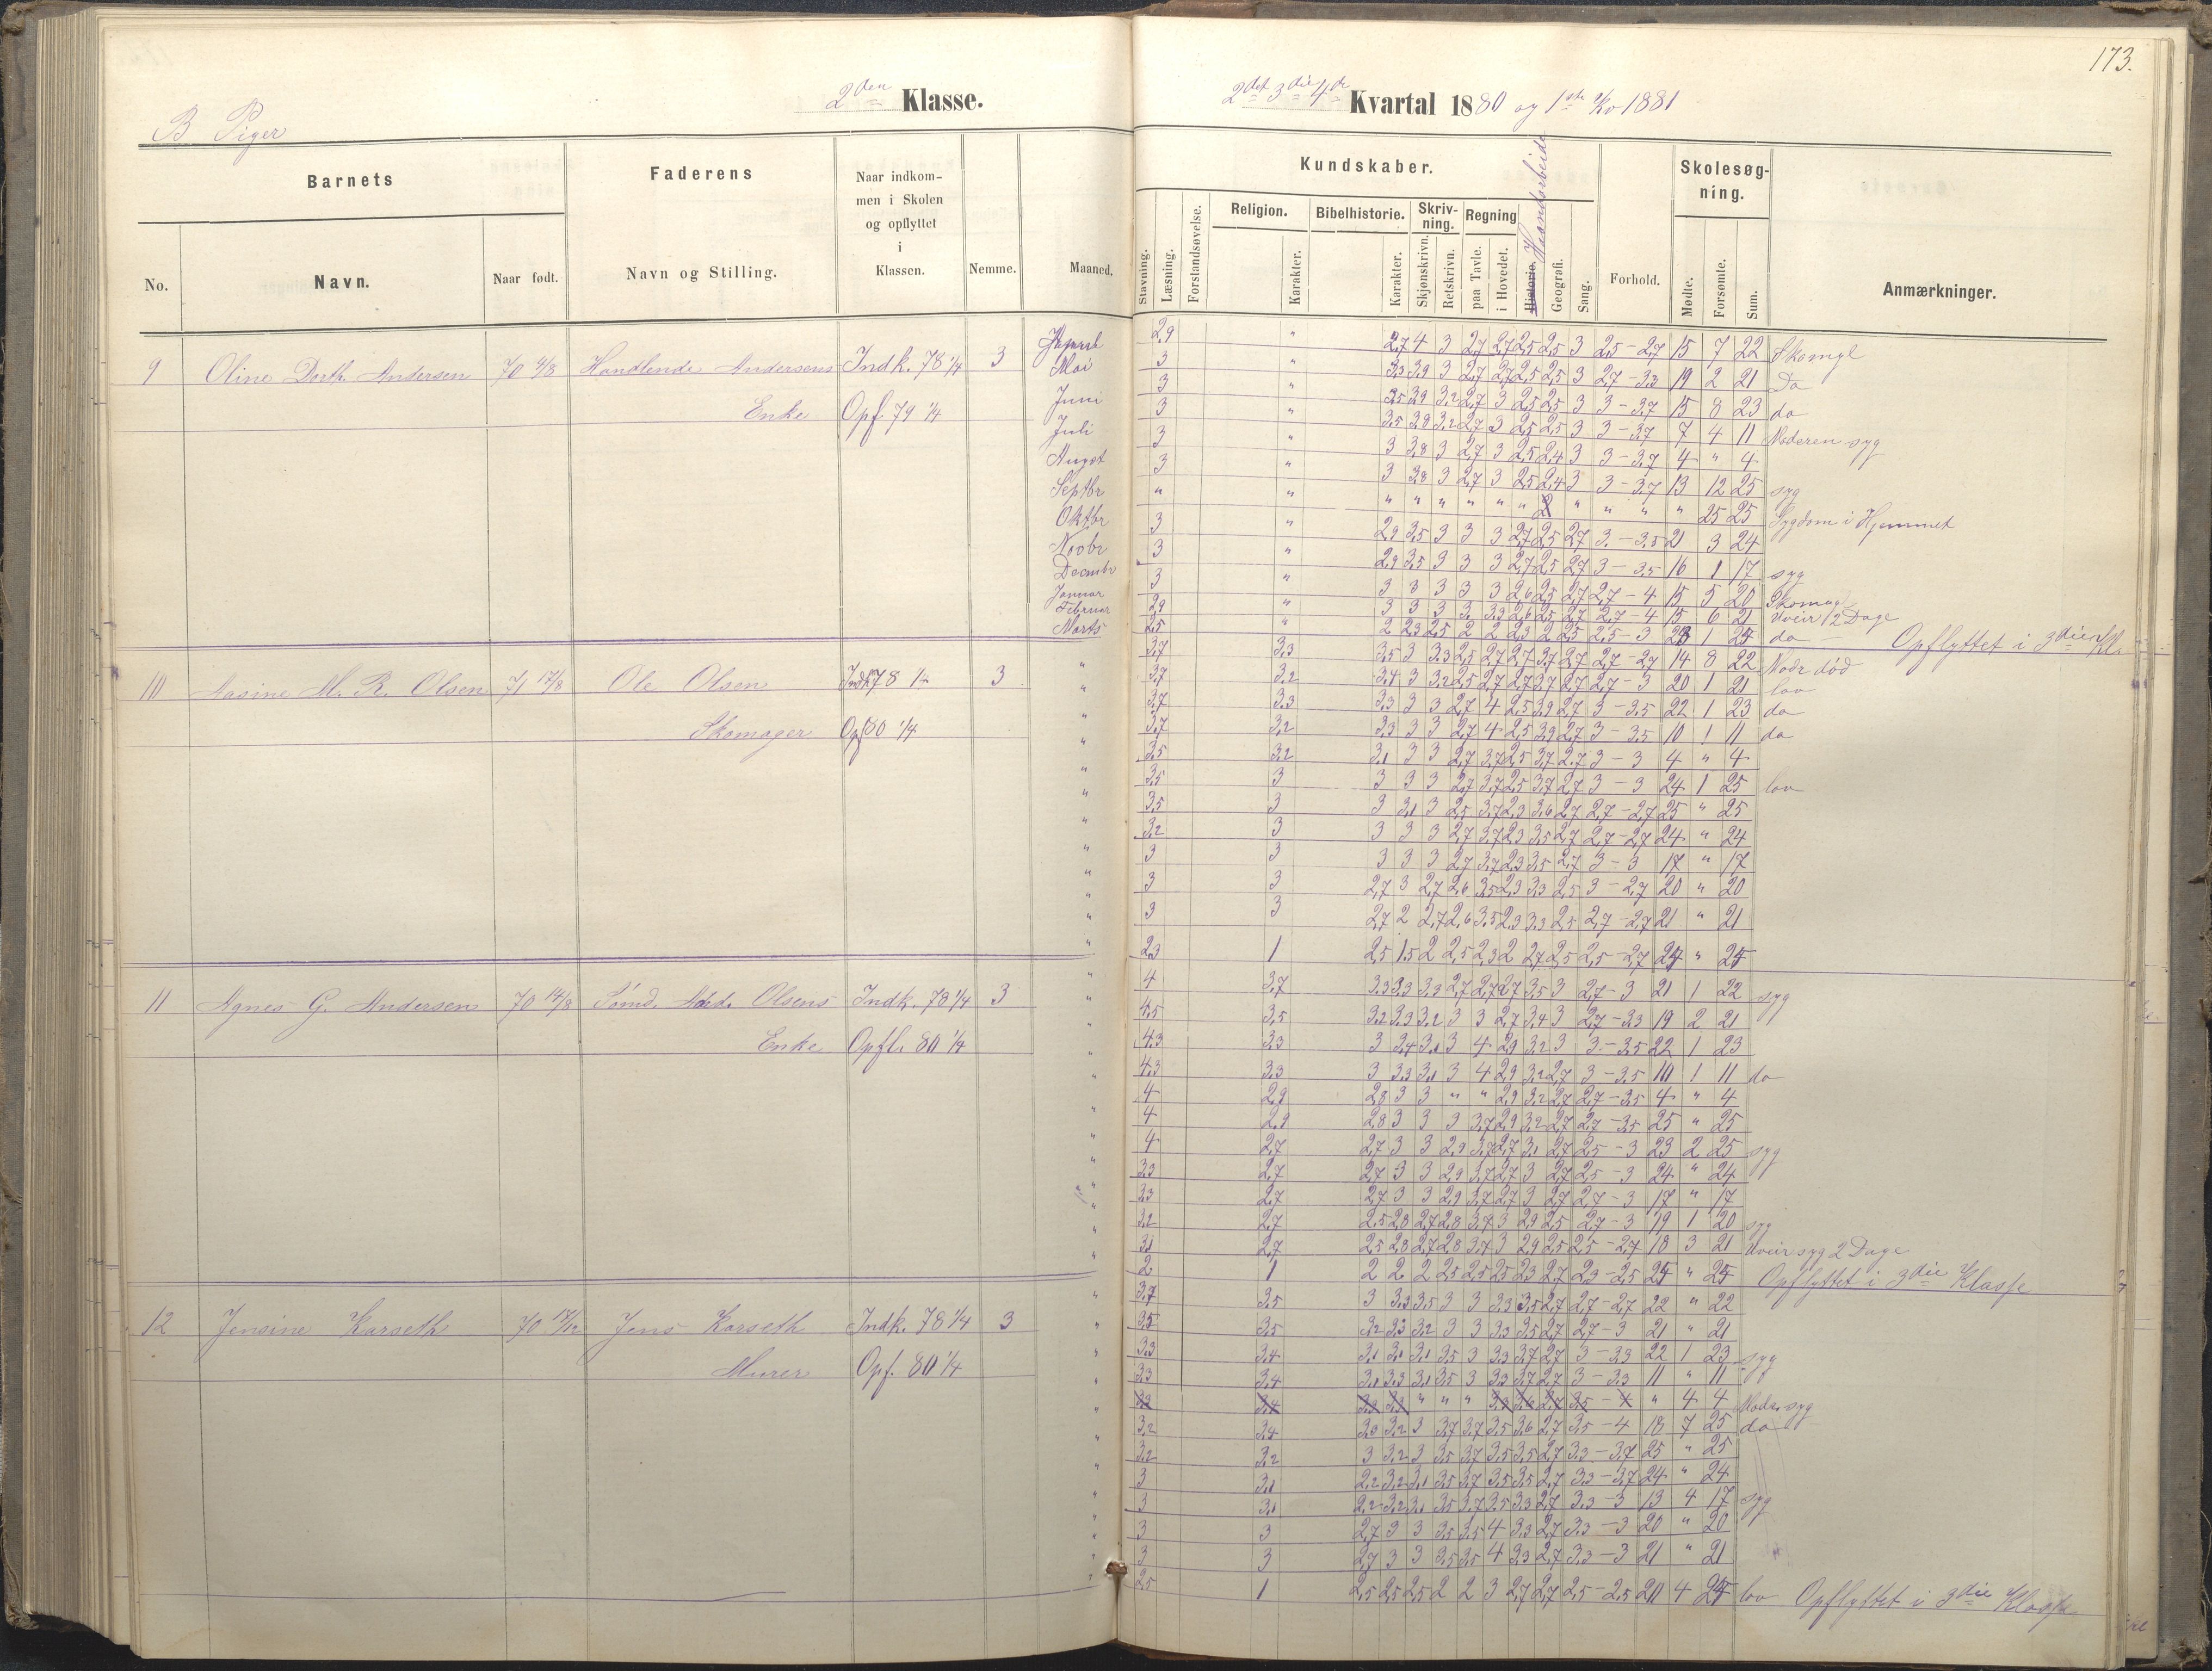 173.
2den Klasse.
2det 3die 4de Kvartal 1880 og 1ste Kv 1881
B Piger
Barnets Faderens Naar indkommen i Skolen og opflyttet i Klassen. Nemme. Maaned.
No. Navn. Naar født. Navn og Stilling.
Kundskaber. Skolesøgning.
Stavning. Læsning. Forstandsøvelse. Religion. Karakter. Bibelhistorie. Karakter. Skrivning. Skjønskrivn. Retskrivn. Regning paa Tavle. i Hovedet. Historie. Haandarbeide Geografi. Sang. Forhold. Mødte. Forsømte. Sum. Anmærkninger.
9 Oline Dorth. Andersen 70 4/8 Handlende Andersens Indk. 78 1/4 3
Enke Opf. 79 1/4
April 2,9 " 2,7 4 3 2,7 2,7 2,5 2,5 3 2,5-2,7 15 7 22 Skomgl
Mai 3 " 3,3 3,9 3 2,7 2,7 2,5 2,5 3 2,7-3,3 19 2 21 Do
Juni 3 " 3,5 3,9 3,2 2,7 3 2,5 2,5 3 3-3,7 15 8 23 do
Juli 3 " 3,5 3,8 3,2 2,7 3 2,5 2,5 3 3-3,7 7 4 11 Moderen syg
August 3 " 3 3,8 3 2,7 3 2,5 2,4 3 3-3,7 4 " 4
Septbr 3 " 3 3,8 3 2,7 3 2,5 2,4 3 3-3,7 13 12 25 syg
Oktbr " " " " " " " " " " " " 25 25 Sygdom i Hjemmet
Novbr 3 " 2,9 3,5 3 3 3 2,7 2,5 2,7 3-3,5 21 3 24
Decmbr 3 " 2,9 3,5 3 3 3 2,7 2,5 2,7 3-3,5 16 1 17 syg
Januar 3 " 3 3 3 3 3 2,6 2,5 2,7 2,7-4 15 5 20 Skomag
Februar 2,9 " 3 3 3 3 3,3 2,6 2,5 2,7 2,7-4 15 6 21 Uveir 2 Dage
Marts 2,5 " 2 2,3 2,5 2 2 2,3 2 2,5 2,5-3 23 1 24 do Opflyttet i 3die Kl.
10 Nasine M. R. Olsen 71 17/8 Ole Olsen Indk 78 1/4 3
Skomager Opf 80 1/4
3,7 3,3 3,5 3 3,3 2,5 2,7 2,7 3,7 2,7 2,7-2,7 14 8 22 Modr død
3,7 3,2 3,4 3 3,2 2,5 2,7 2,7 3,7 2,7 2,7-3 20 1 21 lov
3,7 3,3 3,3 3 3 2,7 4 2,5 3,9 2,7 3-3,5 22 1 23 do
3,7 3,2 3,3 3 3 2,7 4 2,5 3,9 2,7 3-3,5 10 1 11 do
3,5 3,2 3,1 3 3 2,7 3,7 2,5 3,7 2,7 3-3 4 " 4
3,5 3 3 3 3 2,7 3,7 2,5 3,7 2,7 3-3 24 1 25 lov
3,5 3 3 3,1 3 2,5 3,7 2,3 3,6 2,7 2,7-2,7 25 " 25
3,2 3 3 3 3 2,7 3,7 2,3 3,5 2,7 2,7-2,7 24 " 24
3 3 3 3 3 2,7 3,7 2,3 3,5 2,7 3-3 17 " 17
3 3 2,7 3 2,7 2,6 3,5 2,3 3,3 2,5 3-2,7 20 " 20
3 3 2,7 2 2,7 2,6 3,5 2,3 3,3 2,5 2,7-2,7 21 " 21
2,3 1 2,5 1,5 2 2,5 2,3 2 2,7 2,5 2,5-2,7 24 " 24
11 Agnes G. Andersen 70 14/8 Sømd. And. Olsens Indk. 78 1/4 3
Enke Opfl. 80 1/4
4 3,7 3,3 3,3 3,3 2,7 2,7 2,7 3,5 3 2,7-3 21 1 22 syg
4,5 3,5 3,2 3,3 3,2 3 3 2,7 3,4 3 2,7-3,3 19 2 21
4,3 3,3 3 3,4 3,1 3 4 2,9 3,2 3 3-3,5 22 1 23
4,3 3,3 3 3,3 3,1 3 4 2,9 3,2 2,7 3-3,5 10 1 11 do
4 2,9 2,8 3 3 " " 2,9 3,2 2,7 2,7-3,5 4 " 4
4 2,9 2,8 3 3 3 3,7 2,9 3,2 2,7 2,7-3,5 25 " 25
4 2,7 2,7 3 3 2,9 3,7 2,7 3,1 2,7 2,5-3 23 2 25 syg
3,3 2,7 2,7 3 3 2,9 3,7 2,7 3 2,7 2,5-3 24 " 24
3,3 2,7 2,7 3 3 2,9 3,7 2,7 3 2,7 2,7-3 17 " 17
3,2 2,7 2,5 2,8 2,7 2,8 3,7 3 2,9 2,5 2,7-3 19 1 20 syg
3,1 2,7 2,5 2,8 2,7 2,8 3,7 3 2,9 2,5 2,5-2,7 18 3 21 Uveir syg 2 Dage
2 1 2 2 2 2,5 2,5 2,5 2,3 2,7 2,3-2,5 24 " 24 Opflyttet i 3die Klasse
12 Jensine Karseth 70 17/12 Jens Karseth Indk. 78 1/4 3
Murer Opf. 80 1/4
3,7 3,5 3 3,3 3,5 3 3 3,3 3,5 2,7 2,7-2,7 22 " 22
3,5 3,5 3,2 3,3 3,2 3 3 3,3 3,5 2,7 2,7-3 21 " 21
3,3 3,4 3,1 3,1 3,1 3,5 3 3,3 3,7 2,7 3-3,3 22 1 23 syg
3,3 3,4 3,1 3,3 3,1 3,5 3 3,3 3,7 2,7 3-3,3 11 " 11
3,3 3,4 3,3 3,3 " " " 3,3 3,6 2,7 3,5-4 " 4 4 Moder syg
3,2 3,4 3,3 3,2 3 3,7 3,7 3,5 3,6 2,7 3,5-4 18 7 25 do
3,2 3,2 3 3,2 3 3,5 3,7 3,5 3,5 2,7 3,3-3,7 25 " 25
3 3,1 2,2 3,2 3,1 3,5 3,7 3,5 3,5 2,7 3,3-3,7 24 " 24
3 3,1 2,2 3,2 3,1 3,5 3,7 3,5 3,3 2,7 3,3-3 13 4 17 syg
3 3 2,7 3 3 3,5 3,5 4 3,3 2,7 3,3-3 20 " 20
3 3 2,7 3 3 3,5 3,5 4 3,3 2,7 3,3-3 21 " 21
2,5 1 2,5 2,5 2,5 2 2 3 2,7 2,7 2,5-2,5 20 4 24 lov Opflyttet i 3die Klasse